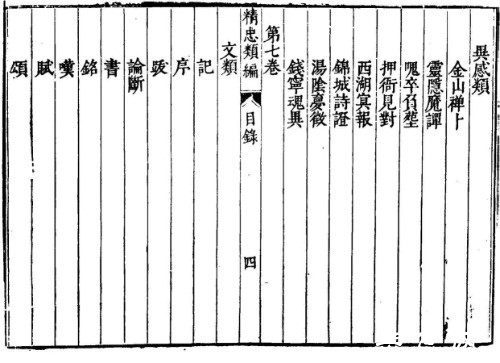 異感類
金山禅卜
靈隱魔譚
隗卒負塟
押衙見對
西湖㝠報
錦城詩證
湯陰夢徵
錢寧魂異
第七卷
精忠類編
目錄
四
文類
記
序
跋
論斷
書
銘
嘆
賦
頌